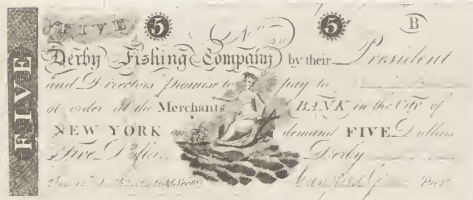 FIVE 5 5 B
No
Derby Fishing Company by their President
and Directors promise to pay to
or order at the Merchants BANK in the City of
NEW YORK on demand FIVE Dollars
Five Dollars Derby
Pres.t
FIVE